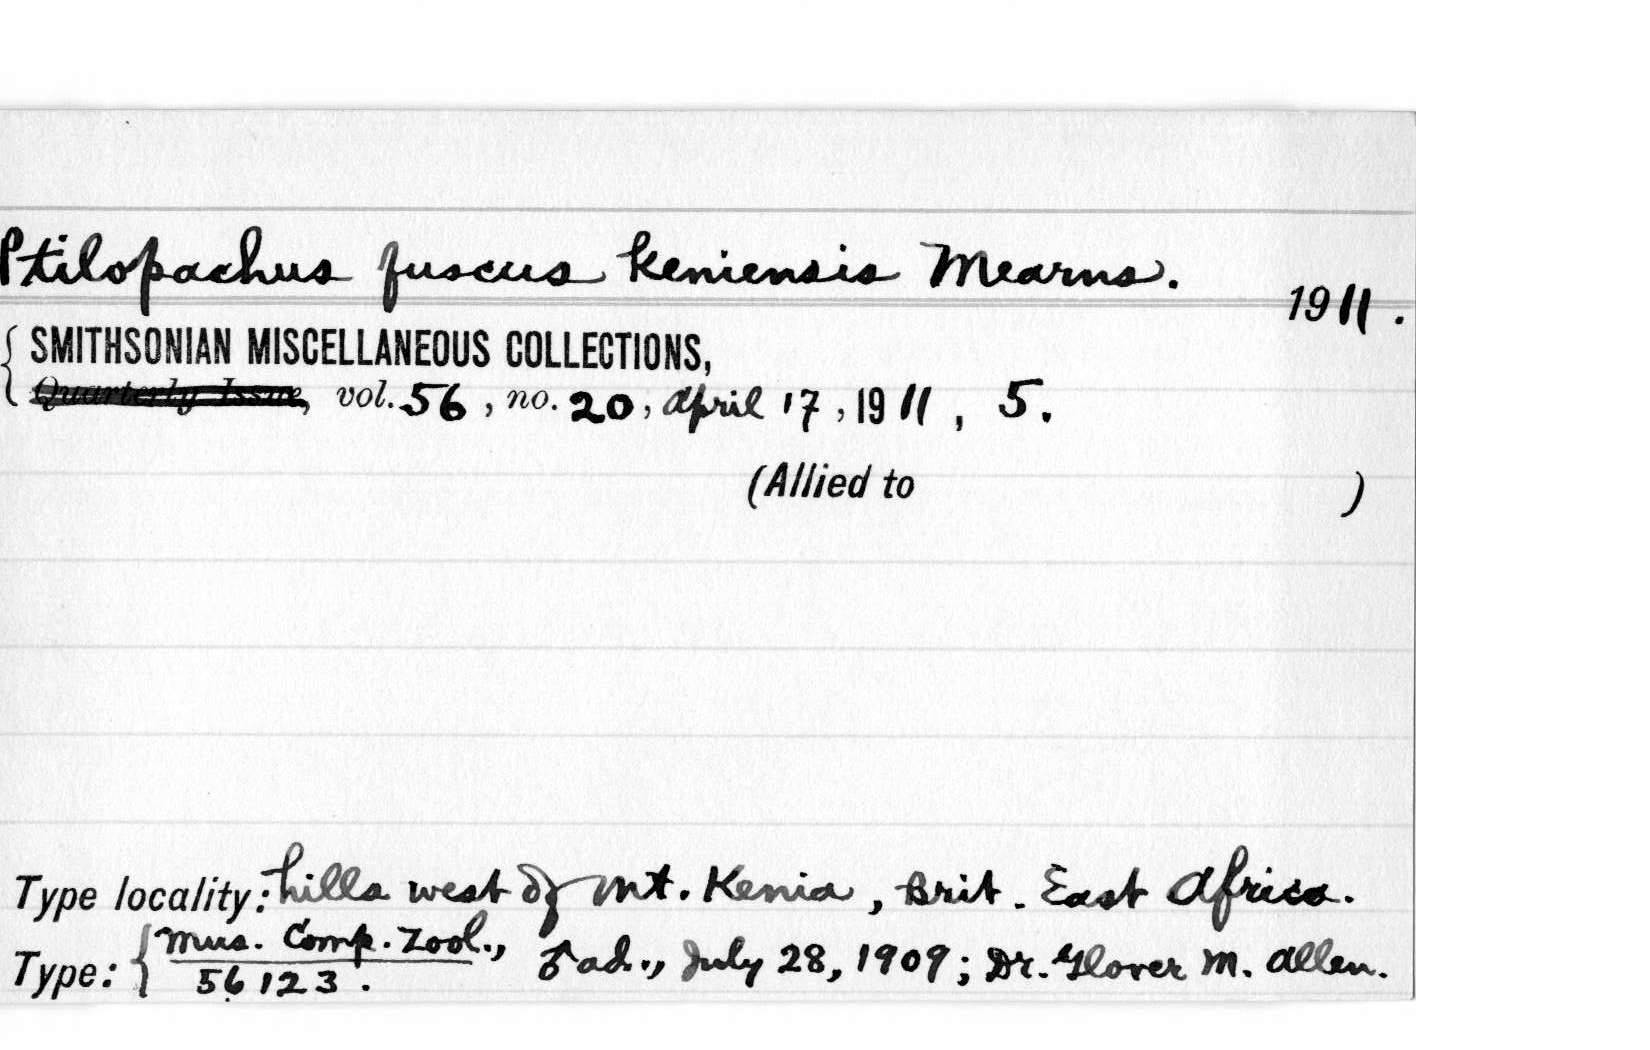 Ptilopachus fuscus keniensis Mearns.
1911.
SMITHSONIAN MISCELLANEOUS COLLECTIONS,
Quarterly Issue, vol. 56, no. 20, April 17, 1911, 5.
(Allied to )
Type locality: hills west of Mt. Kenia, Brit. East Africa.
Type: { Mus. Comp. Zool., ♂ ad., July 28, 1909; Dr. Glover M. Allen.
56123.